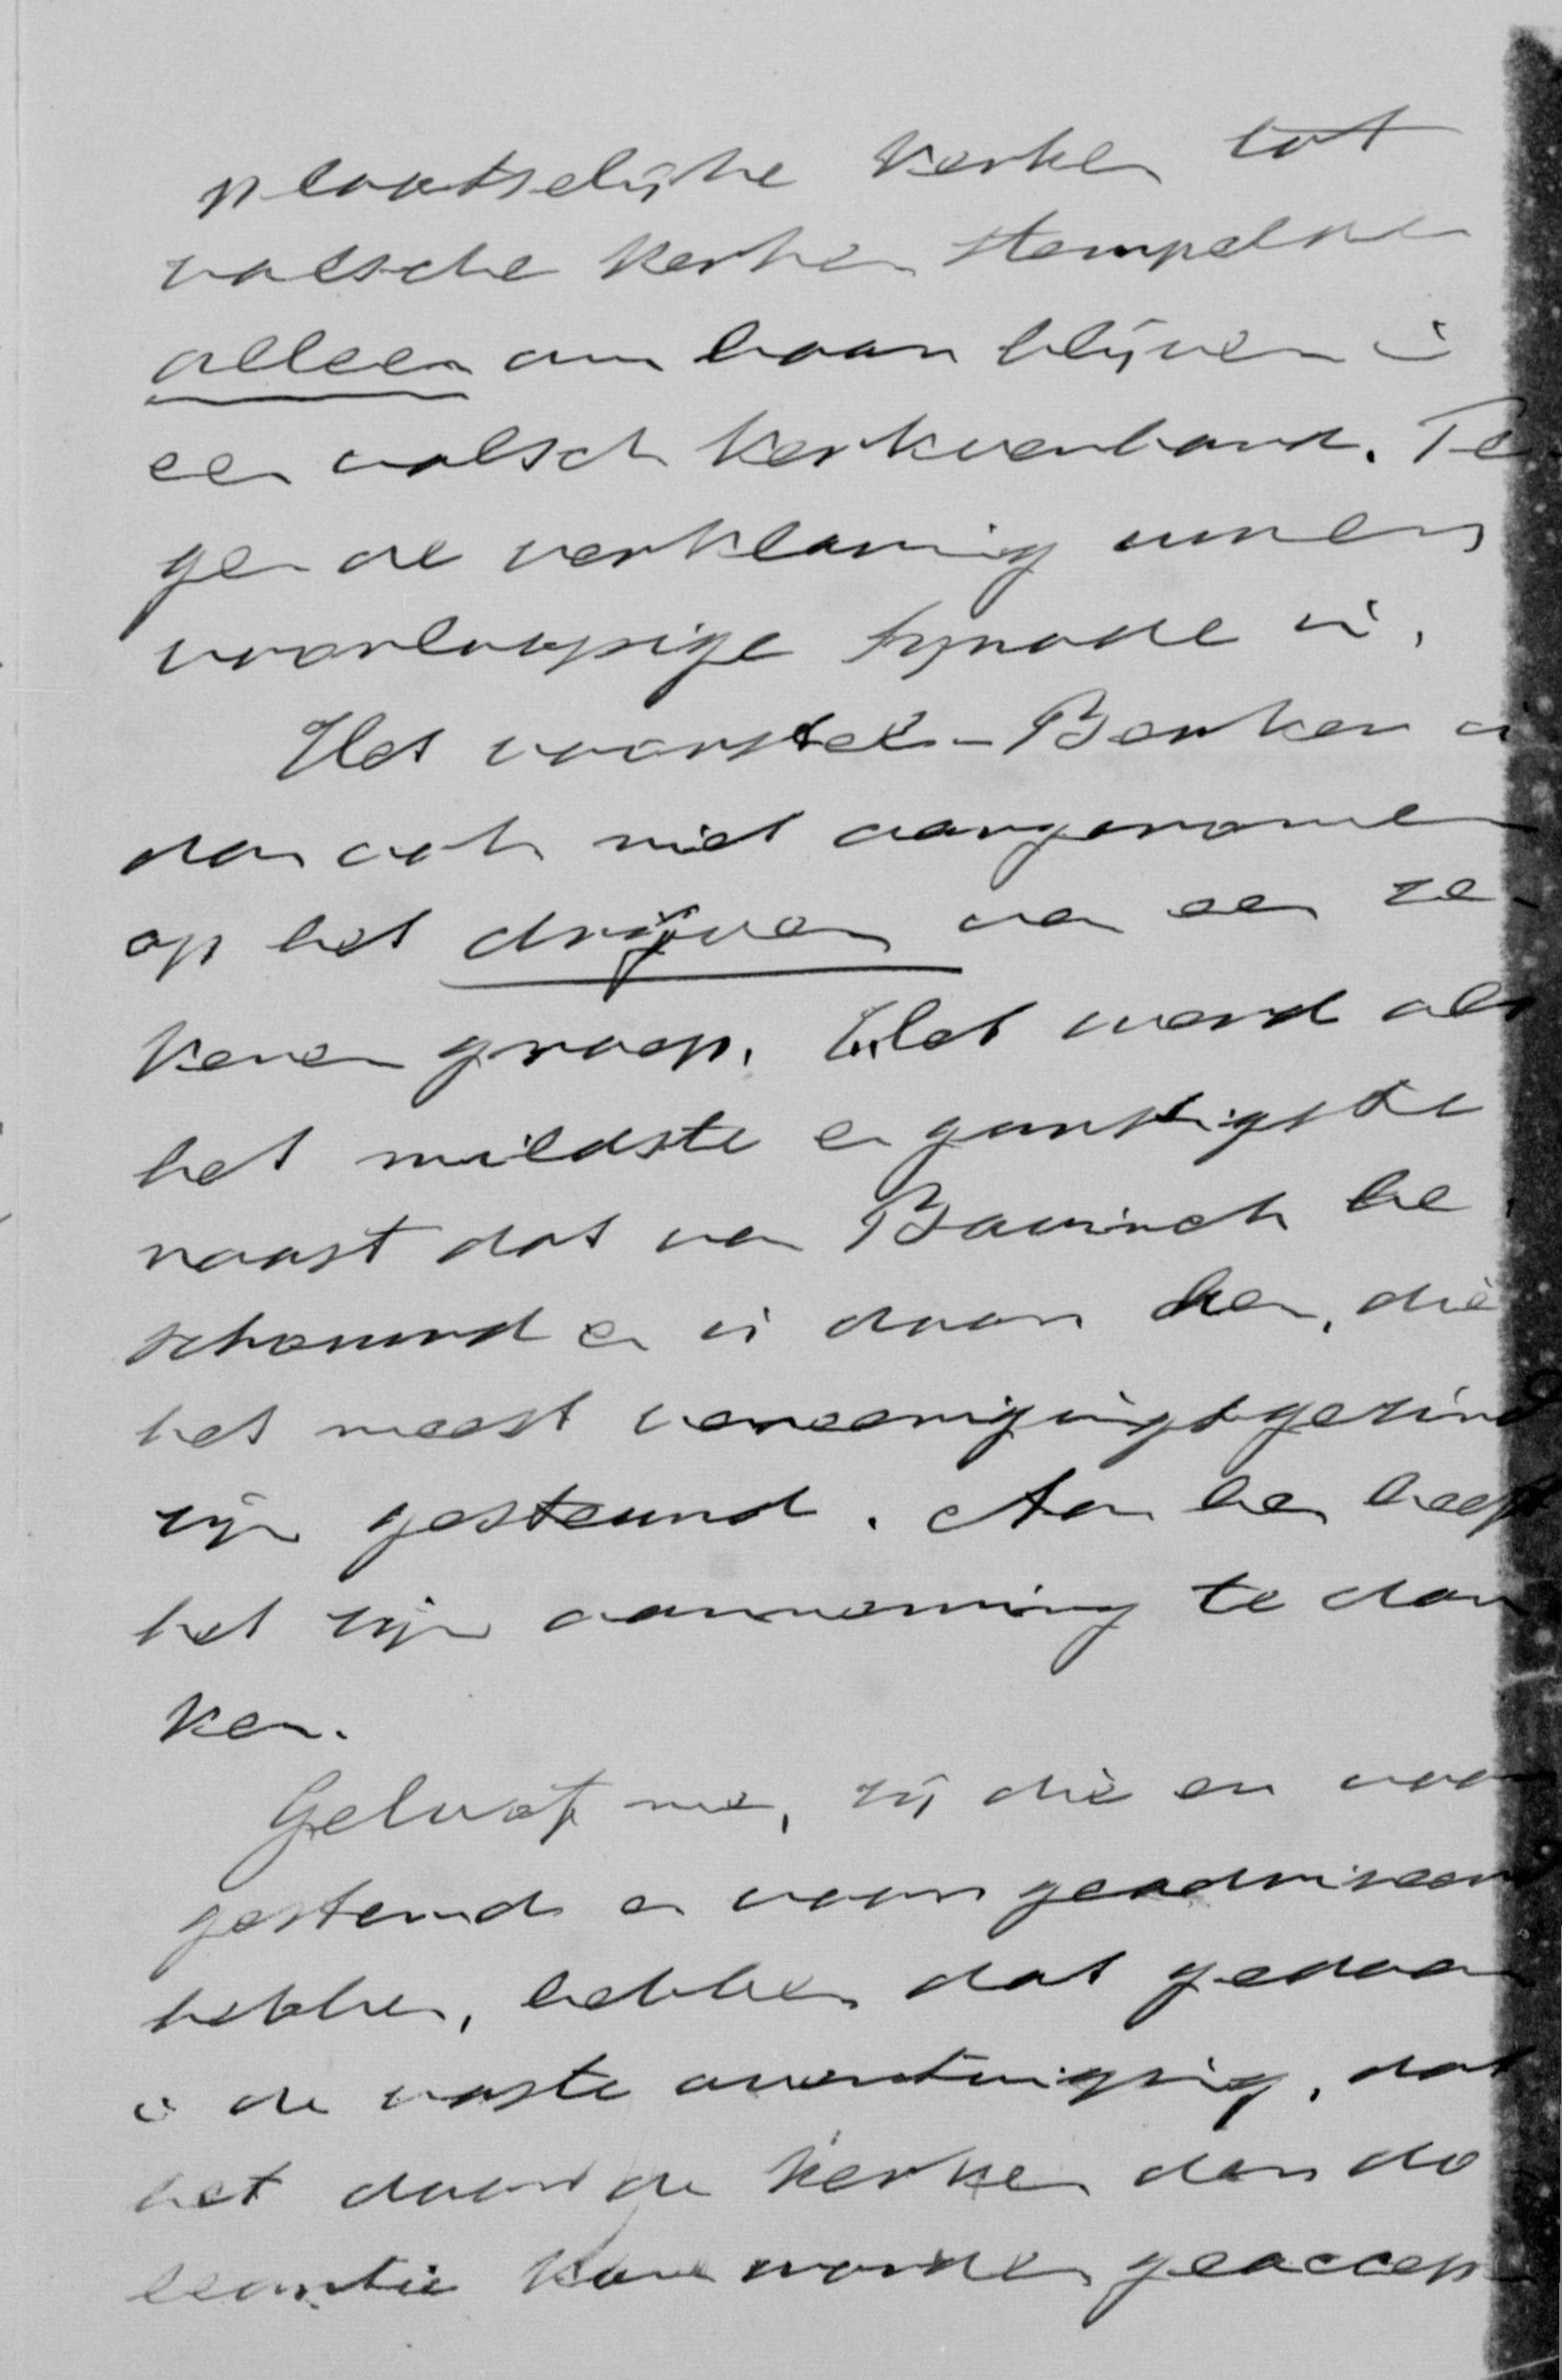 plaatselijke kerken tot
valsche kerken stempelde
alleen om haar blijven in
een valsch kerkverband. Te
gen de verklaring uwer
voorloopige synode in.
Het voorstel-Beuker is
dan ook niet aangenomen
op het drijven van een ze-
keren groep. Het werd als
het mildste en gunstigste
naast dat van Bavinck be
schouwd en is door hen, die
het meest vereenigingsgezind
zijn gesteund. Aan hen heeft
het zijn aanneming te dan
ken.
Geloof me, zij die er voor
gestemd en voor geadviseerd
hebben, hebben dat gedaan
in de vaste overtuiging, dat
het door de kerken der do
leantie kon worden geaccep